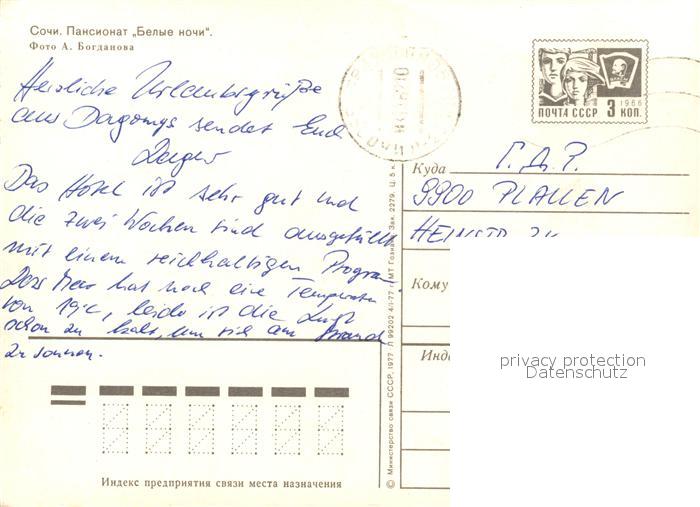 Сочи. Пансионат „Белые ночи".
Фото А. Богданова
Herzliche Urlaubsgrüße
aus Dagomys sendet Euch
Das Hotel ist sehr gut und
die zwei Wochen sind ausgefüllt
mit einem reichhaltigen Program
Das Meer hat noch eine Temperatur
von 19°C, leider ist die Luft
schon zu kalt, um sich am Strand
zu sonnen.
Индекс предприятия связи места назначения
© Министерство связи СССР, 1977 Л 99202 4/I-77 г. МТ Гознака. Зак. 2279. Ц. 5 к.
1966
ПОЧТА СССР 3 КОП.
Куда Г.Д.Р.
9900 PLAUEN
Кому
Инд
privacy protection
Datenschutz